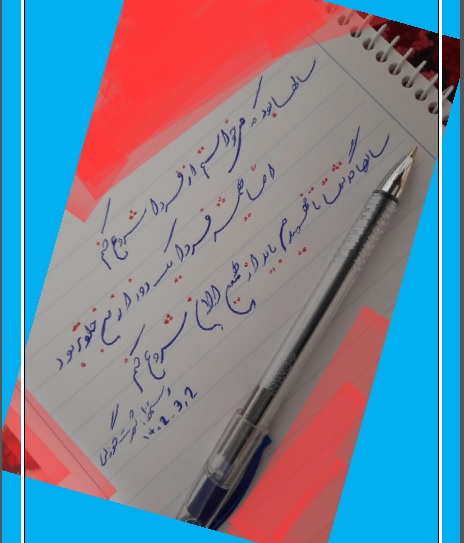 سالها بود که می‌خواستم از فردا شروع کنم
اما همیشه فردا یک روز از من جلوتر بود
سالها گذشت تا فهمیدم باید از همین الان شروع کنم
۱۴۰۲.۳.۲